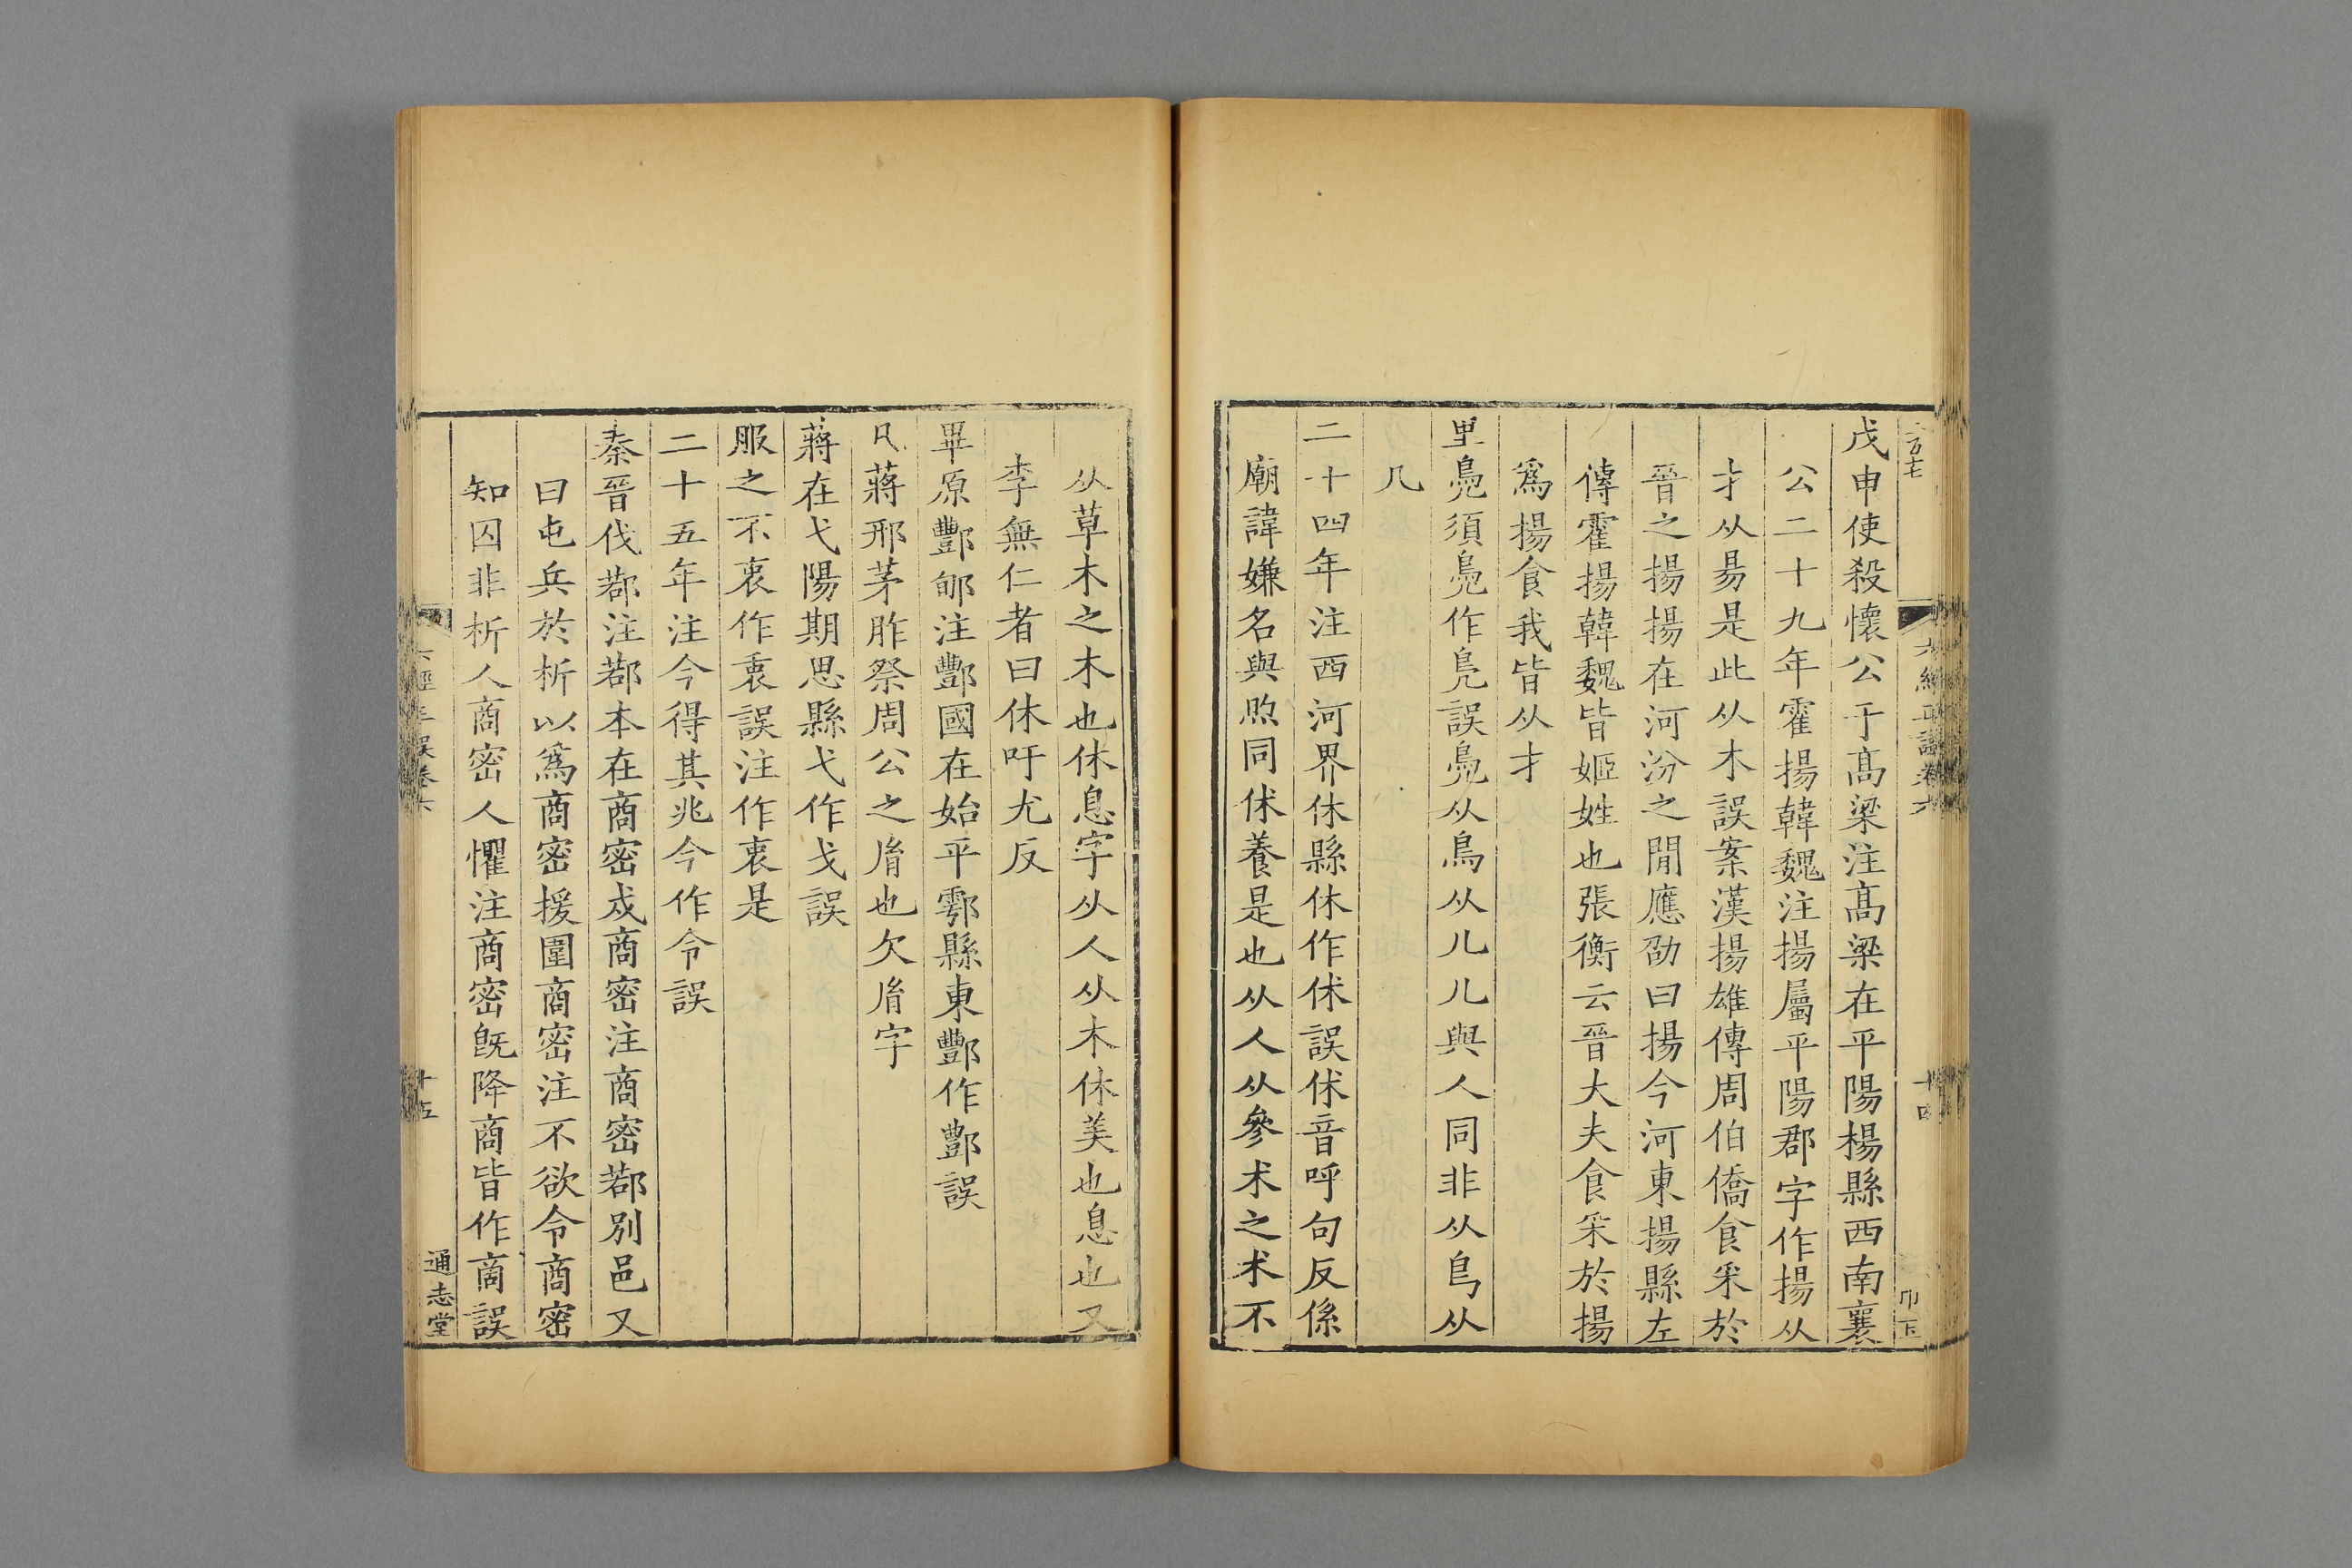 戊申使殺懷公于高梁注高梁在平陽楊縣西南襄
公二十九年霍揚韓魏注揚屬平陽郡字作揚从
才从昜是此从木誤案漢揚雄傳周伯僑食采於
晉之揚揚在河汾之閒應劭曰揚今河東揚縣左
傳霍揚韓魏皆姬姓也張衡云晉大夫食采於揚
爲揚食我皆从才
里鳧須鳧作鳬誤鳧从鳥从儿儿與人同非从鳥从
几
二十四年注西河界休縣休作怵誤怵音呼句反係
廟諱嫌名與煦同怵養是也从人从參术之术不
从草木之木也休息字从人从木休美也息也又
李無仁者曰休吁尤反
畢原酆郇注酆國在始平鄠縣東酆作鄷誤
凡蔣邢茅胙祭周公之胤也欠胤字
蔣在弋陽期思縣弋作戈誤
服之不衷作衷誤注作衷是
二十五年注今得其兆今作令誤
秦晉伐鄀注鄀本在商密戍商密注商密鄀別邑又
曰屯兵於析以爲商密援圍商密注不欲令商密
知囚非析人商密人懼注商密旣降商皆作啇誤
六經正誤卷六
十四
六經正誤卷六
十五
通志堂